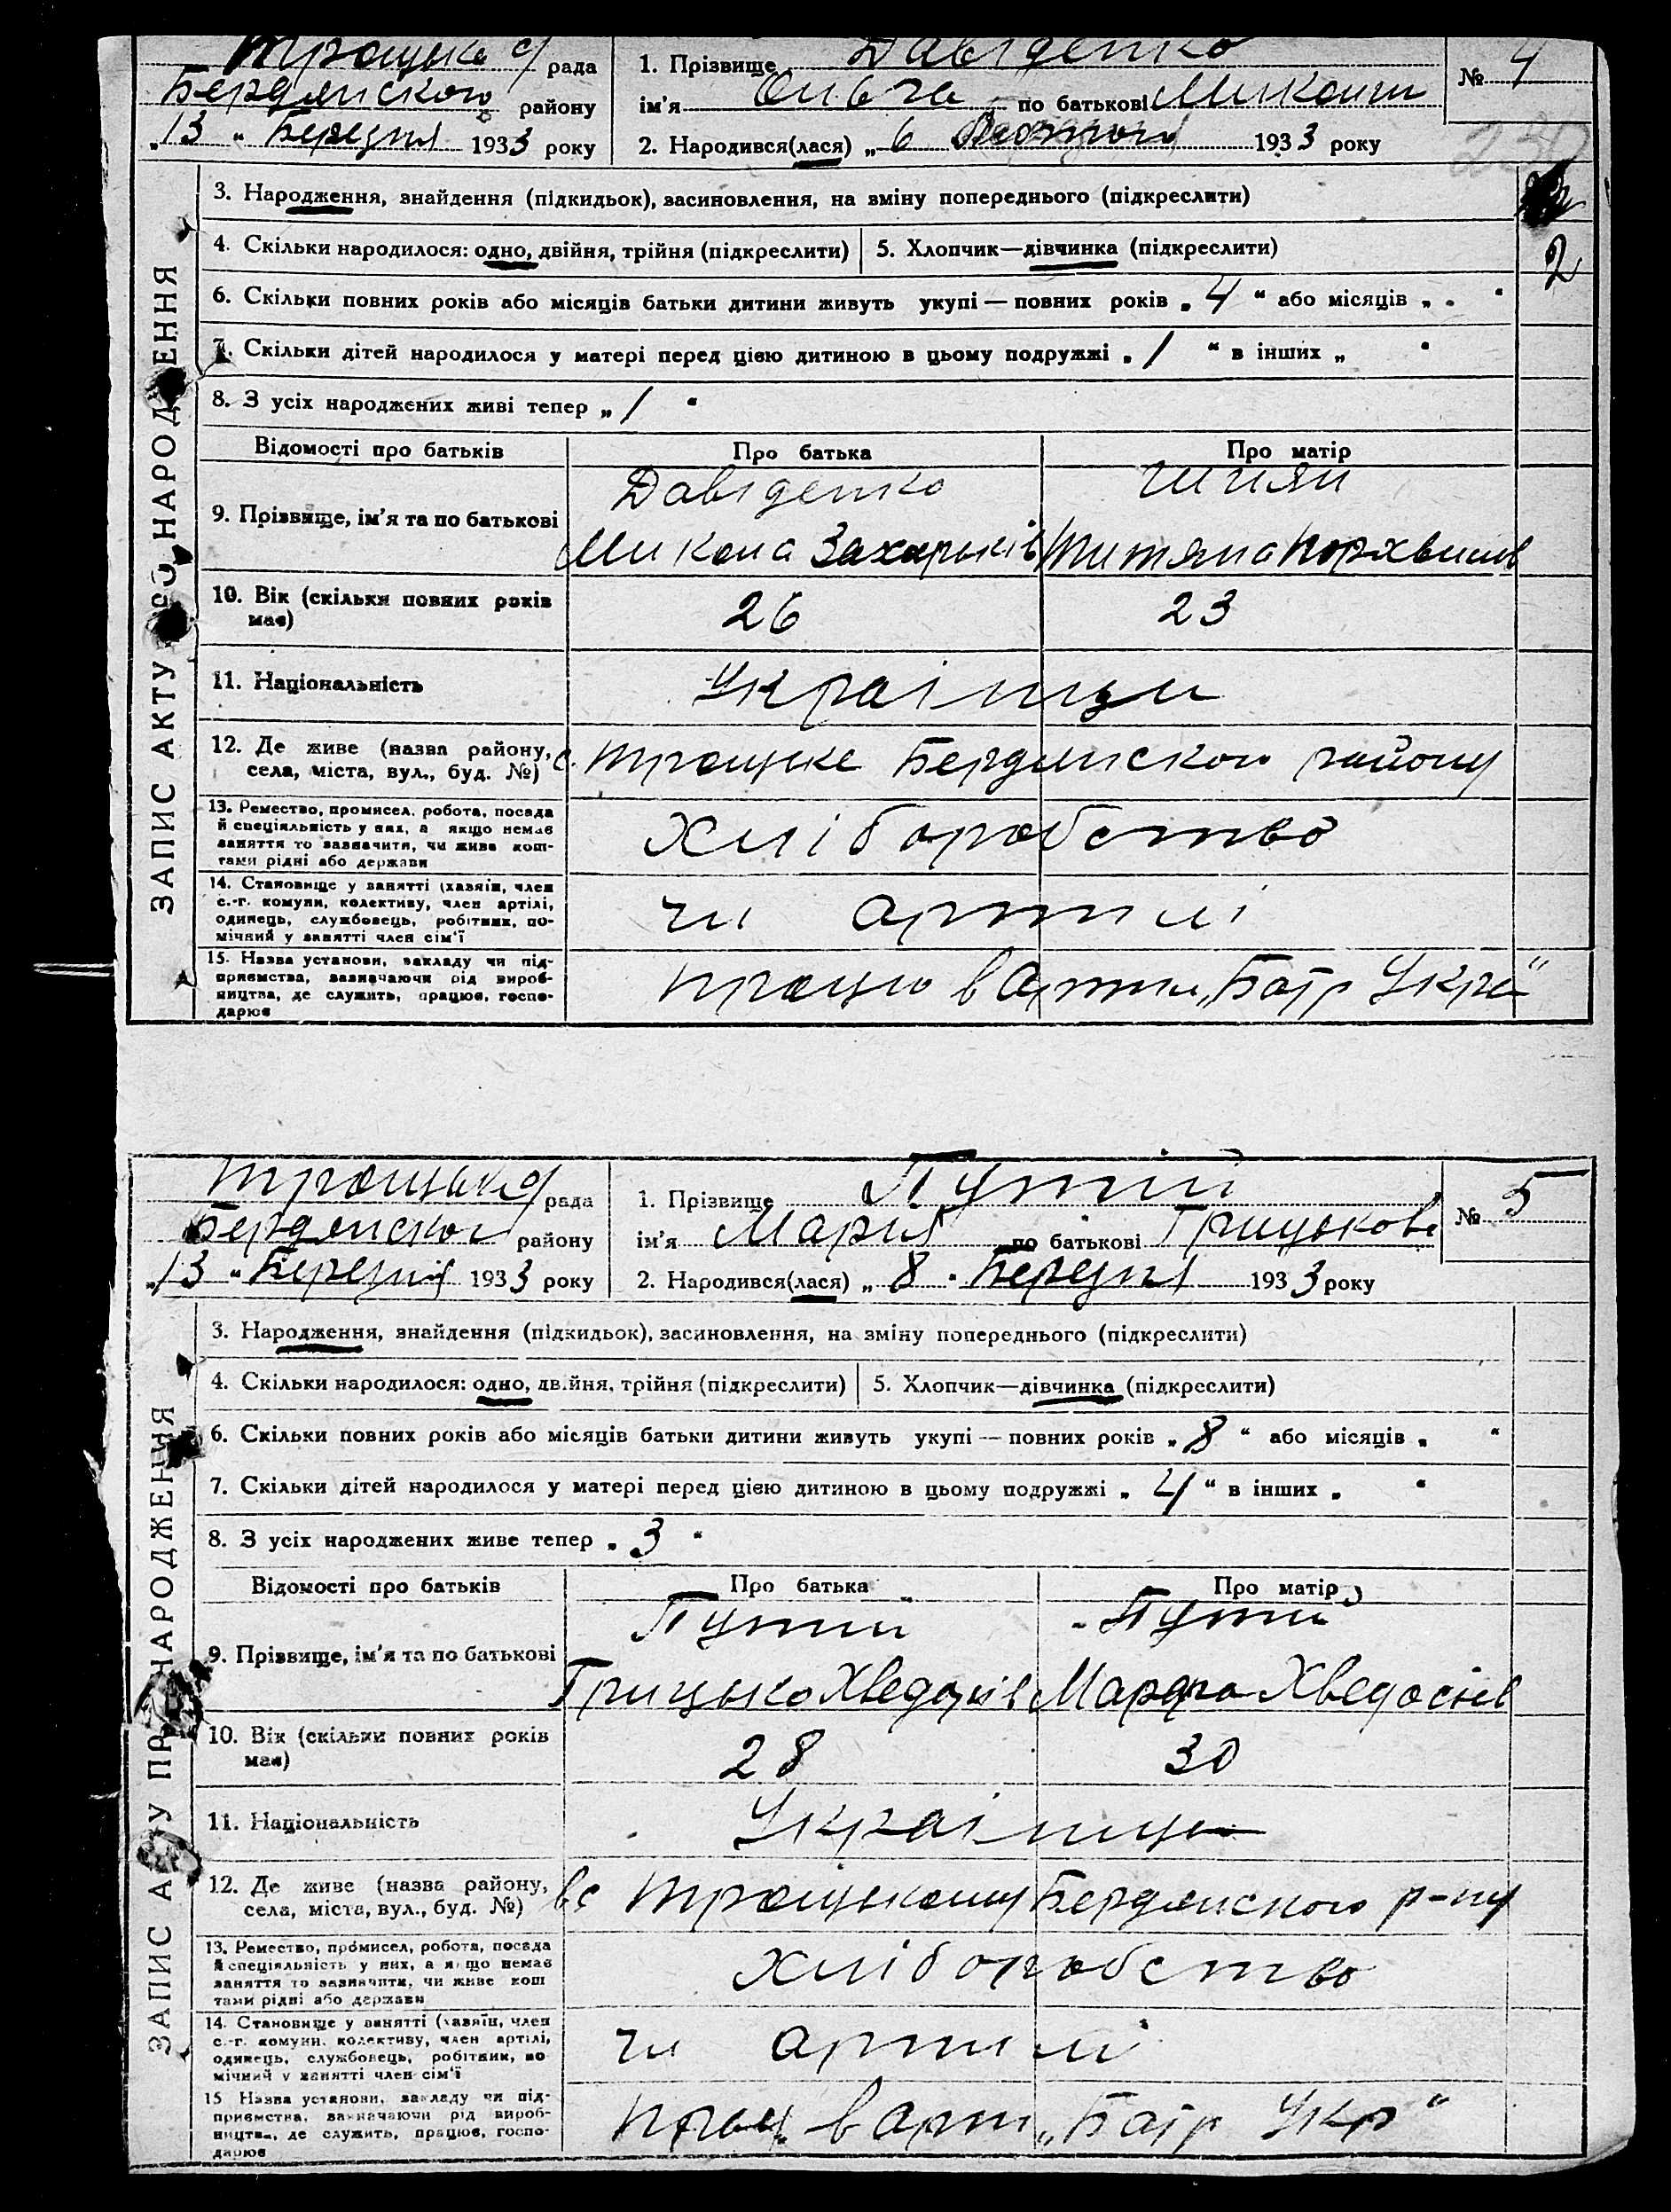 Троцька с/ рада
Бердянського району
„13 " Березня 1933 року
1. Прізвище Давіденко
ім'я Ольга по батькові Миколи
2. Народився(лася) „ 6 Лютого 1933 року
№ 4
230
3. Народження, знайдення (підкидьок), засиновлення, на зміну попереднього (підкреслити)
4. Скільки народилося: одно, двійня, трійня (підкреслити) 5. Хлопчик—дівчинка (підкреслити)
2
6. Скільки повних років або місяців батьки дитини живуть укупі — повних років „ 4 " або місяців „ "
7. Скільки дітей народилося у матері перед цією дитиною в цьому подружжі „ 1 " в інших „ "
8. З усіх народжених живі тепер „ 1 "
ЗАПИС АКТУ НАРОДЖЕННЯ
Відомості про батьків Про батька Про матір
9. Прізвище, ім'я та по батькові
Давіденко
Микола Захарьків
Шиян
Титяна
10. Вік (скільки повних років
має)
26 23
11. Національність
Українци
12. Де живе (назва району,
села, міста, вул., буд. №)
с. Троцьке Бердянского району
13. Ремество, промисел, робота, посада
й спеціяльність у них, а якщо немає
заняття то зазначити, чи живе кош-
тами рідні або держави
Хліборобство
14. Становище у занятті (хазяїн, член
с.-г. комуни, колективу, член артілі,
одинець, службовець, робітник, по-
мічний у занятті член сім'ї
чл артілі
15. Назва установи, закладу чи під-
приємства, зазначаючи рід вироб-
ництва, де служить, працює, госпо-
дарює
працю в Артили „Батр Укра"
Троцька с/ рада
Бердянского району
„13 " Березня 1933 року
1. Прізвище Путій
ім'я Мария по батькові Грицькові
2. Народився(лася) „ 8 " Березня 1933 року
№ 5
3. Народження, знайдення (підкидьок), засиновлення, на зміну попереднього (підкреслити)
4. Скільки народилося: одно, двійня, трійня (підкреслити) 5. Хлопчик—дівчинка (підкреслити)
6. Скільки повних років або місяців батьки дитини живуть укупі — повних років „ 8 " або місяців „ "
7. Скільки дітей народилося у матері перед цією дитиною в цьому подружжі „ 4 " в інших „ "
8. З усіх народжених живе тепер „ 3 "
ЗАПИС АКТУ ПРО НАРОДЖЕННЯ
Відомості про батьків Про батька Про матір
9. Прізвище, ім'я та по батькові
Путий
Грицько Хведоків
Путий
Марфа Хведосіев
10. Вік (скільки повних років
має)
28 30
11. Національність
Українци
12. Де живе (назва району,
села, міста, вул., буд. №)
в с Троцькому Бердянского р-ну
13. Ремество, промисел, робота, посада
й спеціяльність у них, а якщо немає
заняття то зазначити, чи живе кош
тами рідні або держави
Хліборобство
14. Становище у занятті (хазяїн, член
с.-г. комуни, колективу, член артілі,
одинець, службовець, робітник, по
мічний у занятті член сім'ї
чл артилі
15 Назва установи, закладу чи під-
приємства, зазначаючи рід вироб-
ництва, де служить, працює, госпо-
дарює
прац. в арт „Батр Укр"